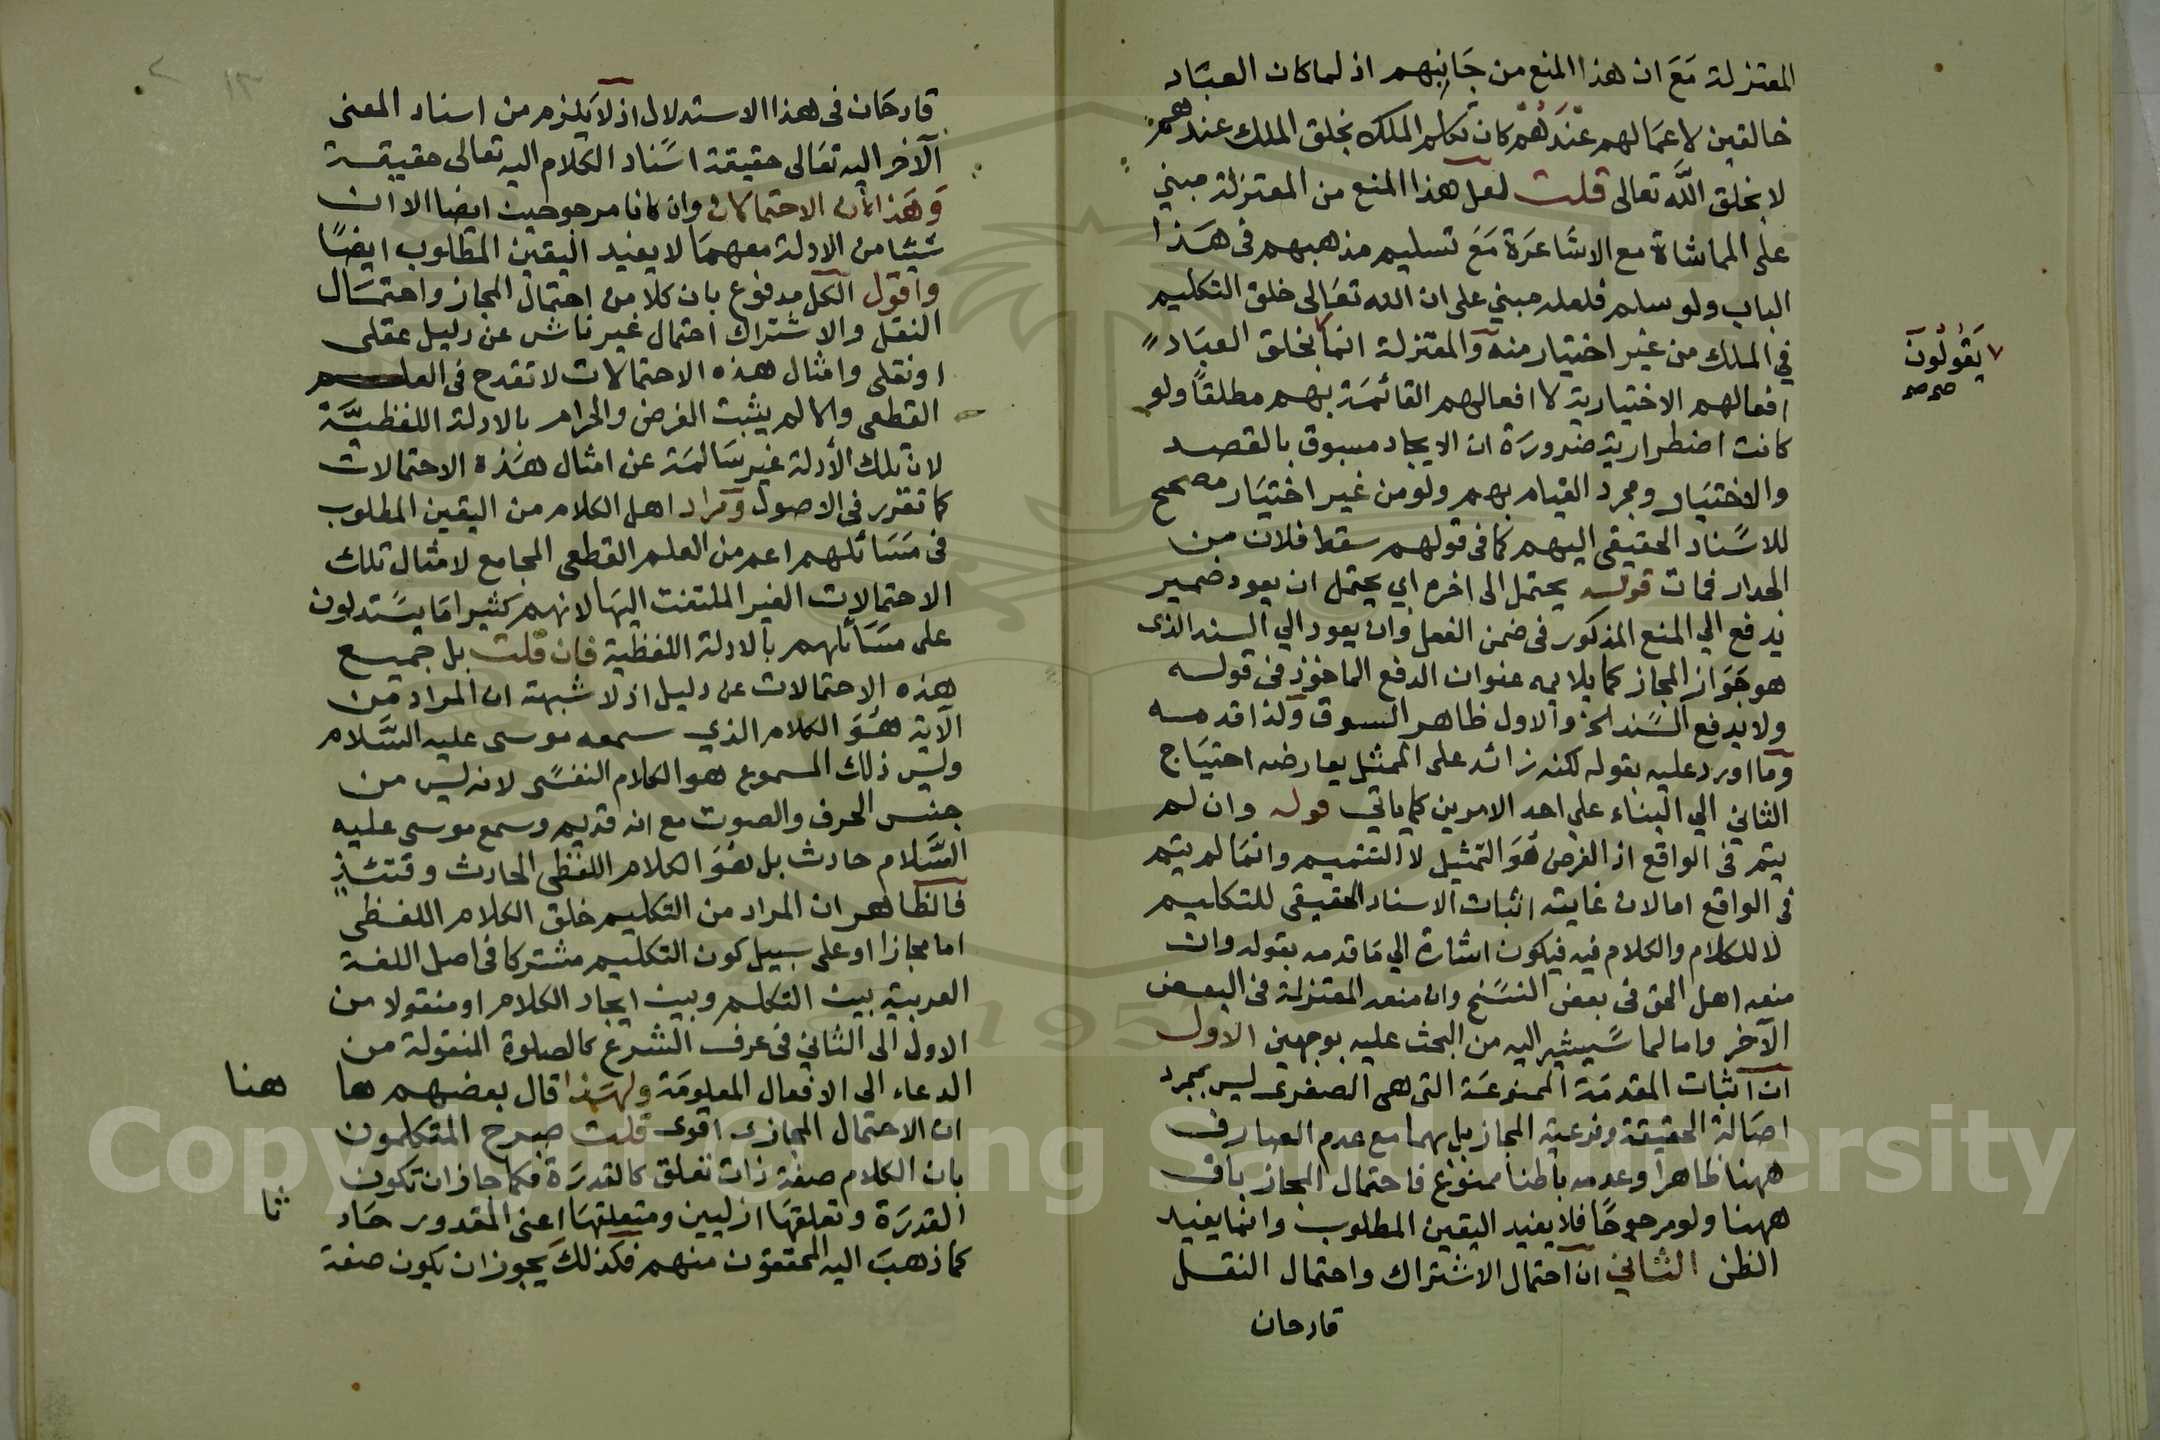 المعتزلة مَعَ ان هذا المنع من جَانِبهم اذ لما كان العبَاد
خالقين لاعمَالهم عنْدَهُم كان تكلم الملك بخلق الملك عندهم
لا بخلق اللَّه تعالى قلت لعل هذا المنع من المعتزلة مبني
على المماشاة مع الاشَاعرَة مَعَ تسليم مذهبهم فى هَذا
الباب ولو سلم فلعله مبني على ان الله تعَالى خلق التكليم
في الملك من غير اختيار منه والمعتزلة انما يخلق العبَاد
يَقُولُونَ
صح صح
افعالهم الاختيارية لا افعالهم القائمَة بهم مطلقًا ولو
كانت اضطرارية ضرورَة ان الايجاد مسبوق بالقصد
والاختيَار ومجرد القيام بهم ولو من غير اختيَار مصحح
للاسَناد الحقيقى اليهم كما فى قولهم سقط فلان من
الجدار فمات قوله يحتمل الى اخره اي يحتمل ان يعود ضمير
يدفع الي المنع المذكور فى ضمن الفعل وان يعود الي السند الذى
هو جَوَاز المجاز كما يلايمه عنوان الدفع الماخوذ فى قوله
ولا يدفع السَند الخ والاول ظاهر السوق ولذا قدمه
وما اورد عليه بقوله لكنه زائد على الممثل يعارضه احتيَاج
الثاني الي البناء على احد الامرين كما ياتي قوله وان لم
يتم فى الواقع اذ الغرض هَوَ التمثيل لا التتميم وانمَا لم يتم
فى الواقع اما لان غايته اثبات الاسناد الحقيقى للتكليم
لا للكلام والكلام فيه فيكون اشارة الي مَا قدمه بقوله وان
منعه اهل الحق فى بعض النسَخ وان منعه المعتزلة فى البعض
الآخر واما لما سَيشير اليه من البحث عليه بوجهين الاول
ان اثبات المقدمَة الممنوعَة التى هى الصغرى ليس بمجرد
اصَالة الحقيقة وفرعية المجاز بل بهما مع عدم الصارف
ههنا ظاهرا وعدمه باطنا ممنوع فاحتمال المجاز باق
ههنا ولو مرجوحًا فلا يفيد اليقين المطلوب وانما يفيد
الظن الثاني ان احتمال الاشتراك واحتمال النقل
قادحان
قادحَان فى هذا الاستدلال اذ لا يلزم من اسناد المعنى
الآخر اليه تعَالى حقيقة اسَناد الكلام اليه تعالى حقيقة
وَهَذان الاحتمالان وان كانا مرجوحين ايضا الا ان
شيئا من الادلة معهمَا لا يفيد اليقين المطلوب ايضًا
واقول الكل مدفوع بان كلا من احتمال المجاز واحتمَال
النقل والاشتراك احتمال غير ناش عن دليل عقلى
او نقلى وامثال هذه الاحتمالات لا تقدح فى العلم
القطعى والا لم يثبت الفرض والحرام بالادلة اللفظيَّة
لان تلك الأدلة غير سَالمَة عن امثال هَذه الاحتمالات
كما تقرر فى الاصول ومراد اهل الكلام من اليقين المطلوب
فى مسَائلهم اعم من العلم القطعى المجامع لامثال تلك
الاحتمالات الغير الملتفت اليهَا لانهم كثيرا مَا يسَتدلون
على مسَائلهم بالادلة اللفظية فان قلت بل جميع
هذه الاحتمالات عن دليل اذ لا شبهة ان المراد من
الآية هُوَ الكلام الذي سمعه موسى عليه السَّلام
وليس ذلك المسموع هو الكلام النفسَى لانه ليس من
جنس الحرف والصوت مع انه قديم وسمع موسى عليه
السَّلام حادث بل هُوَ الكلام اللفظى الحادث وقتئذٍ
فالظاهر ان المراد من التكليم خلق الكلام اللفظى
اما مجازا او على سبيل كون التكليم مشتركا فى اصل اللغة
العربية بين التكلم وبين ايجاد الكلام او منقولا من
الاول الى الثاني فى عرف الشرع كالصلوة المنقولة من
الدعاء الى الافعال المعلومَة ولهَذا قال بعضهم ها هنا
ان الاحتمال المجازى اقوى قلت صرح المتكلمون
بان الكلام صفة ذات تعلق كالقدرَة فكما جاز ان تكون
القدرَة وتعلقهَا ازليين ومتعلقهَا اعنى المقدور حَاد ثا
كما ذهبَ اليه المحققون منهم فكذلكَ يجوز ان يكون صفة
Copyright © King Saud University
1957